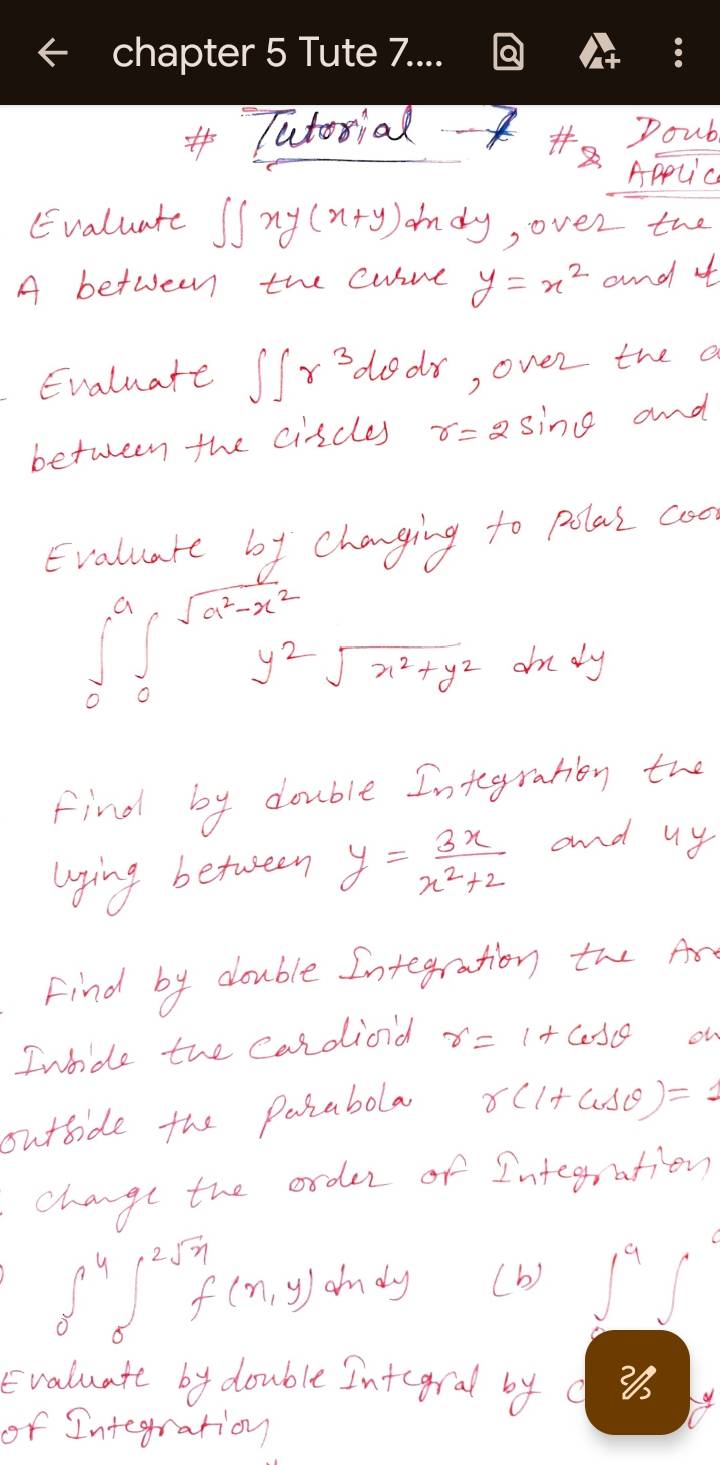 chapter 5 Tute 7....
# Tutorial - 7 # Doub
& Applica
Evaluate ∫∫ xy(x+y) dx dy, over the
A between the curve y = x² and
Evaluate ∫∫ r³ dθ dr, over the a
between the circles r = 2 sin θ and
Evaluate by changing to Polar coor
∫₀^a ∫₀^√(a²-x²) y² √(x²+y²) dx dy
find by double Integration the
lying between y = 3x/(x²+2) and 4y
Find by double Integration the Are
Inside the Cardioid r = 1 + cosθ
outside the Parabola r(1+cosθ) = 1
change the order of Integration
∫₀^4 ∫₀^2√x f(x,y) dx dy (b) ∫^a ∫
Evaluate by double Integral by
of Integration